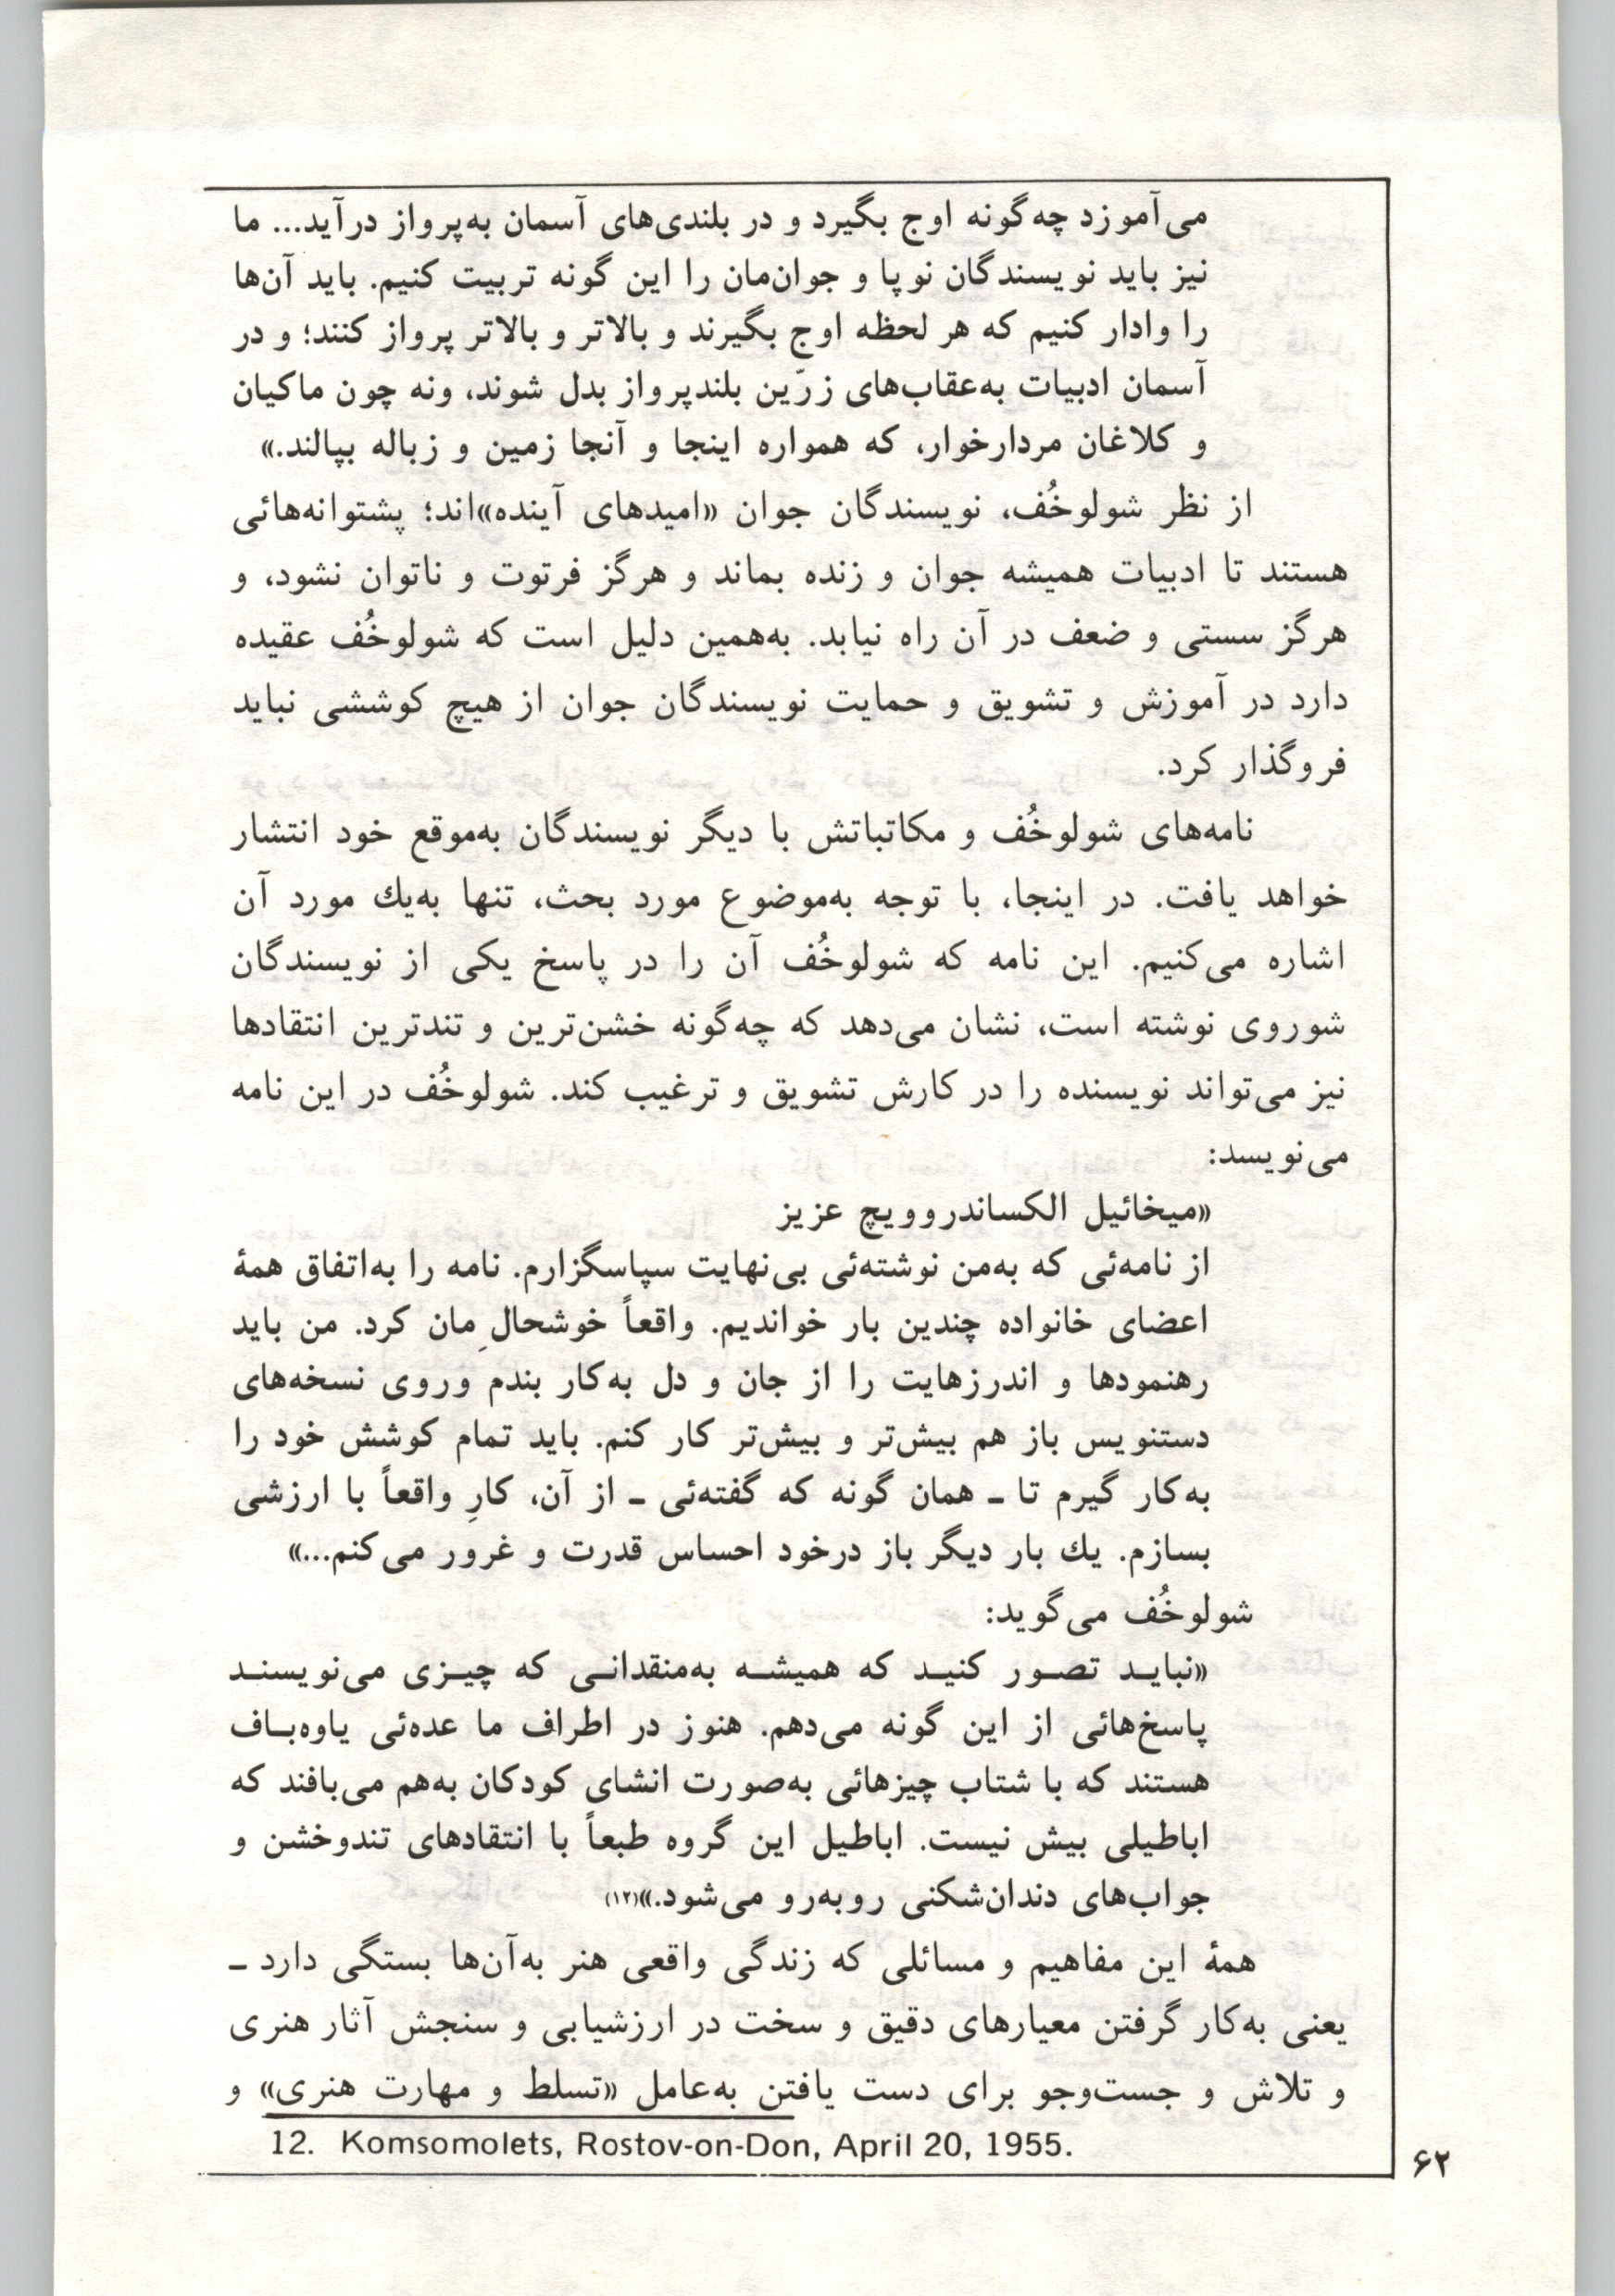 می‌آموزد چه‌گونه اوج بگیرد و در بلندی‌های آسمان به‌پرواز درآید... ما
نیز باید نویسندگان نوپا و جوان‌مان را این گونه تربیت کنیم. باید آن‌ها
را وادار کنیم که هر لحظه اوج بگیرند و بالاتر و بالاتر پرواز کنند؛ و در
آسمان ادبیات به‌عقاب‌های زرّین بلندپرواز بدل شوند، ونه چون ماکیان
و کلاغان مردارخوار، که همواره اینجا و آنجا زمین و زباله بپالند.»
از نظر شولوخُف، نویسندگان جوان «امیدهای آینده»اند؛ پشتوانه‌هائی
هستند تا ادبیات همیشه جوان و زنده بماند و هرگز فرتوت و ناتوان نشود، و
هرگز سستی و ضعف در آن راه نیابد. به‌همین دلیل است که شولوخُف عقیده
دارد در آموزش و تشویق و حمایت نویسندگان جوان از هیچ کوششی نباید
فروگذار کرد.
نامه‌های شولوخُف و مکاتباتش با دیگر نویسندگان به‌موقع خود انتشار
خواهد یافت. در اینجا، با توجه به‌موضوع مورد بحث، تنها به‌یك مورد آن
اشاره می‌کنیم. این نامه که شولوخُف آن را در پاسخ یکی از نویسندگان
شوروی نوشته است، نشان می‌دهد که چه‌گونه خشن‌ترین و تندترین انتقادها
نیز می‌تواند نویسنده را در کارش تشویق و ترغیب کند. شولوخُف در این نامه
می‌نویسد:
«میخائیل الکساندروویچ عزیز
از نامه‌ئی که به‌من نوشته‌ئی بی‌نهایت سپاسگزارم. نامه را به‌اتفاق همهٔ
اعضای خانواده چندین بار خواندیم. واقعاً خوشحالِ‌مان کرد. من باید
رهنمودها و اندرزهایت را از جان و دل به‌کار بندم وروی نسخه‌های
دستنویس باز هم بیش‌تر و بیش‌تر کار کنم. باید تمام کوشش خود را
به‌کار گیرم تا ـ همان گونه که گفته‌ئی ـ از آن، کارِ واقعاً با ارزشی
بسازم. یك بار دیگر باز درخود احساس قدرت و غرور می‌کنم...»
شولوخُف می‌گوید:
«نبایـد تصـور کنیـد که همیشـه به‌منقدانـی که چیـزی می‌نویسنـد
پاسخ‌هائی از این گونه می‌دهم. هنوز در اطراف ما عده‌ئی یاوه‌بـاف
هستند که با شتاب چیزهائی به‌صورت انشای کودکان به‌هم می‌بافند که
اباطیلی بیش نیست. اباطیل این گروه طبعاً با انتقادهای تندوخشن و
جواب‌های دندان‌شکنی روبه‌رو می‌شود.»(۱۲)
همهٔ این مفاهیم و مسائلی که زندگی واقعی هنر به‌آن‌ها بستگی دارد ـ
یعنی به‌کار گرفتن معیارهای دقیق و سخت در ارزشیابی و سنجش آثار هنری
و تلاش و جست‌وجو برای دست یافتن به‌عامل «تسلط و مهارت هنری» و
12. Komsomolets, Rostov-on-Don, April 20, 1955.
۶۲